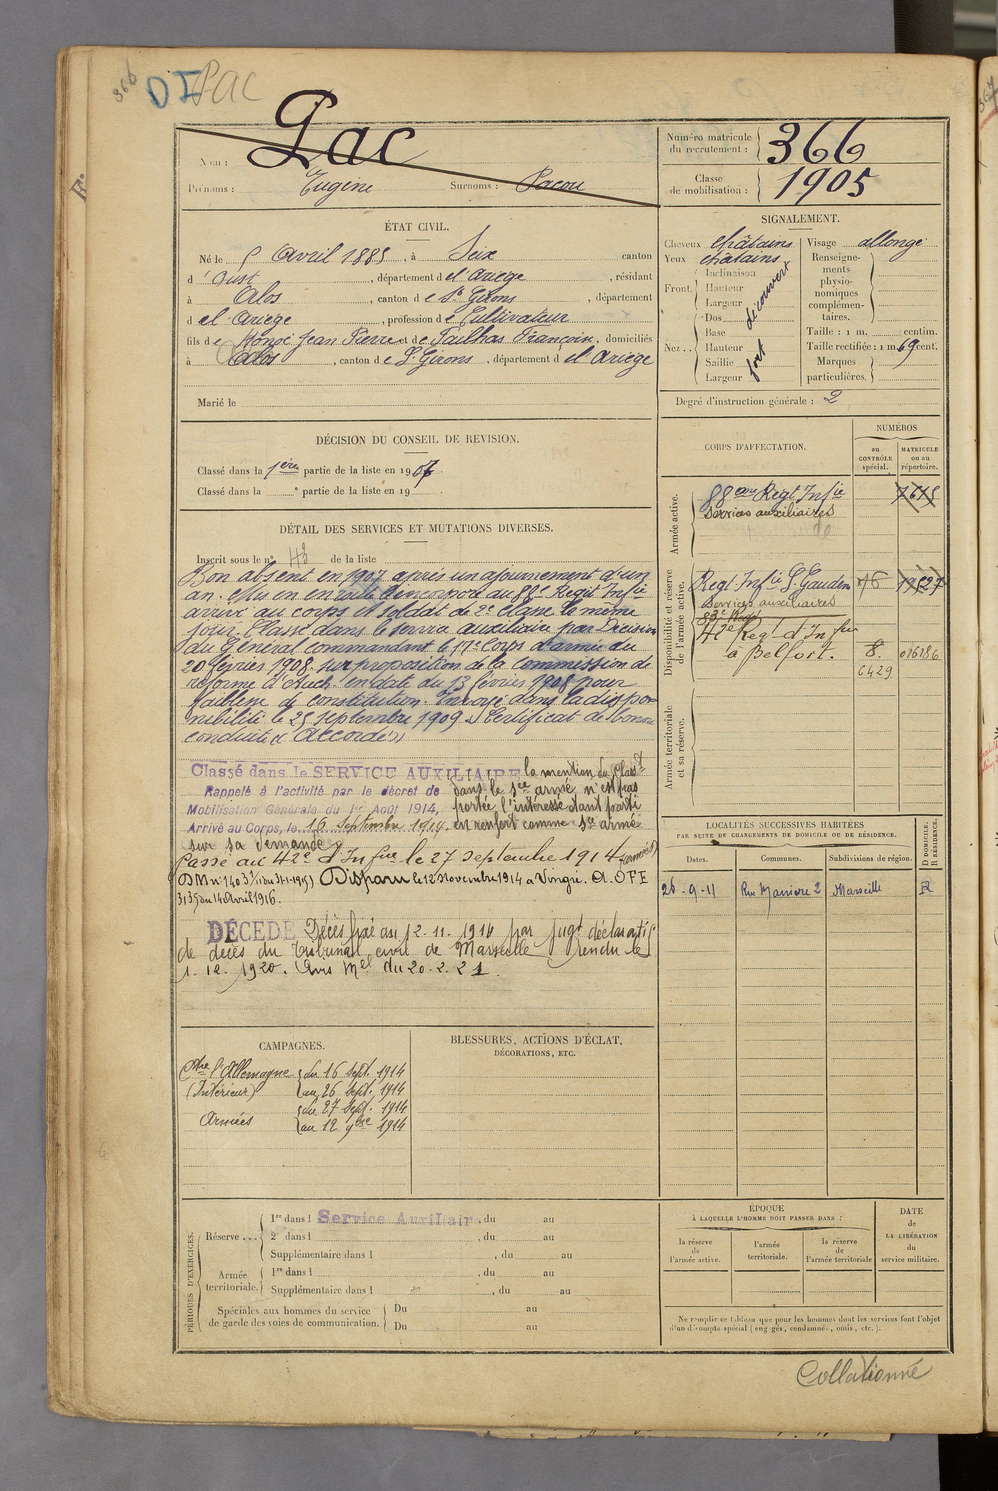 366 DI PAC
Nom : Pac
Prénoms : Eugène Surnoms : Pacou
Numéro matricule
du recrutement : 366
Classe
de mobilisation : 1905
ÉTAT CIVIL.
Né le 5 Avril 1885, à Seix canton
d'Oust, département de l'Ariège, résidant
à Alos, canton de St Girons, département
de l'Ariège, profession de Cultivateur
fils de Jean Pierre et de Faulhas Françoise, domiciliés
à Alos, canton de St Girons, département de l'Ariège
Marié le
SIGNALEMENT.
Cheveux châtains
Yeux châtains
Front. Inclinaison
Hauteur
Largeur
découvert
Nez. Dos
Base
Hauteur
Saillie
Largeur
fort
Visage allongé
Renseigne-
ments
physio-
nomiques
complémen-
taires.
Taille : 1 m. centim.
Taille rectifiée : 1 m. 69 cent.
Marques
particulières.
Degré d'instruction générale : 2
DÉCISION DU CONSEIL DE REVISION.
Classé dans la 1ère partie de la liste en 1907
Classé dans la ° partie de la liste en 19
DÉTAIL DES SERVICES ET MUTATIONS DIVERSES.
Inscrit sous le n° 43 de la liste
Bon absent en 1907 après un ajournement d'un
an. Mis en en route incorporé au 88e Régit Infie
arrivé au corps et soldat de 2e classe le même
jour. Classé dans le service auxiliaire par Décision
du Général commandant le 17e Corps d'armée du
20 février 1908. sur proposition de la commission de
réforme d'Auch. en date du 13 février 1908 pour
faiblesse de constitution. Envoyé dans la dispo-
nibilité le 25 septembre 1909. (Certificat de bonne
conduite "Accordé")
Classé dans le SERVICE AUXILIAIRE la mention du Classt
Rappelé à l'activité par le décret de dans le sce armé n'est pas
Mobilisation Générale du 1er Août 1914, portée l'intéressé étant parti
Arrivé au Corps, le 16 Septembre 1914 en renfort comme sce armé
sur sa demande
Passé au 42e d'Infie le 27 septembre 1914 (armées)
Disparu le 12 Novembre 1914 à Vingré. A.OFF
3135 du 14 Avril 1916.
DÉCÉDÉ Décès fixé au 12.11.1914 par jugt déclaratif
de décès du tribunal civil de Marseille rendu le
1.12.1920. Avis Mel du 20.2.21.
CORPS D'AFFECTATION.
NUMÉROS
au
CONTRÔLE
spécial.
MATRICULE
ou au
répertoire.
Armée active.
88eme Régt Infie 7675
Services auxiliaires
Disponibilité et réserve
de l'armée active.
Régt Infie St Gaudens 76 19527
Services auxiliaires
83e Régt
42e Régt d'Infie
à Belfort. 8. 016186
6429
Armée territoriale
et sa réserve.
LOCALITÉS SUCCESSIVES HABITÉES
PAR SUITE DE CHANGEMENTS DE DOMICILE OU DE RÉSIDENCE.
Dates. Communes. Subdivisions de région. D DOMICILE. R RÉSIDENCE.
26-9-11 Rue 2 Marseille R
CAMPAGNES.
Ctre l'Allemagne du 16 Sept. 1914
(Intérieur) au 26 Sept. 1914
Armées du 27 Sept. 1914
au 12 9bre 1914
BLESSURES, ACTIONS D'ÉCLAT,
DÉCORATIONS, ETC.
PÉRIODES D'EXERCICES.
Réserve 1re dans l Service Auxiliaire, du au
2e dans l , du au
Supplémentaire dans l , du au
Armée
territoriale. 1re dans l , du au
Supplémentaire dans l , du au
Spéciales aux hommes du service
de garde des voies de communication. Du au
Du au
ÉPOQUE
À LAQUELLE L'HOMME DOIT PASSER DANS :
la réserve
de
l'armée active.
l'armée
territoriale.
la réserve
de
l'armée territoriale
DATE
de
LA LIBÉRATION
du
service militaire.
Ne remplir ce tableau que pour les hommes dont les services font l'objet
d'un décompte spécial (engagés, condamnés, omis, etc.).
Collationné